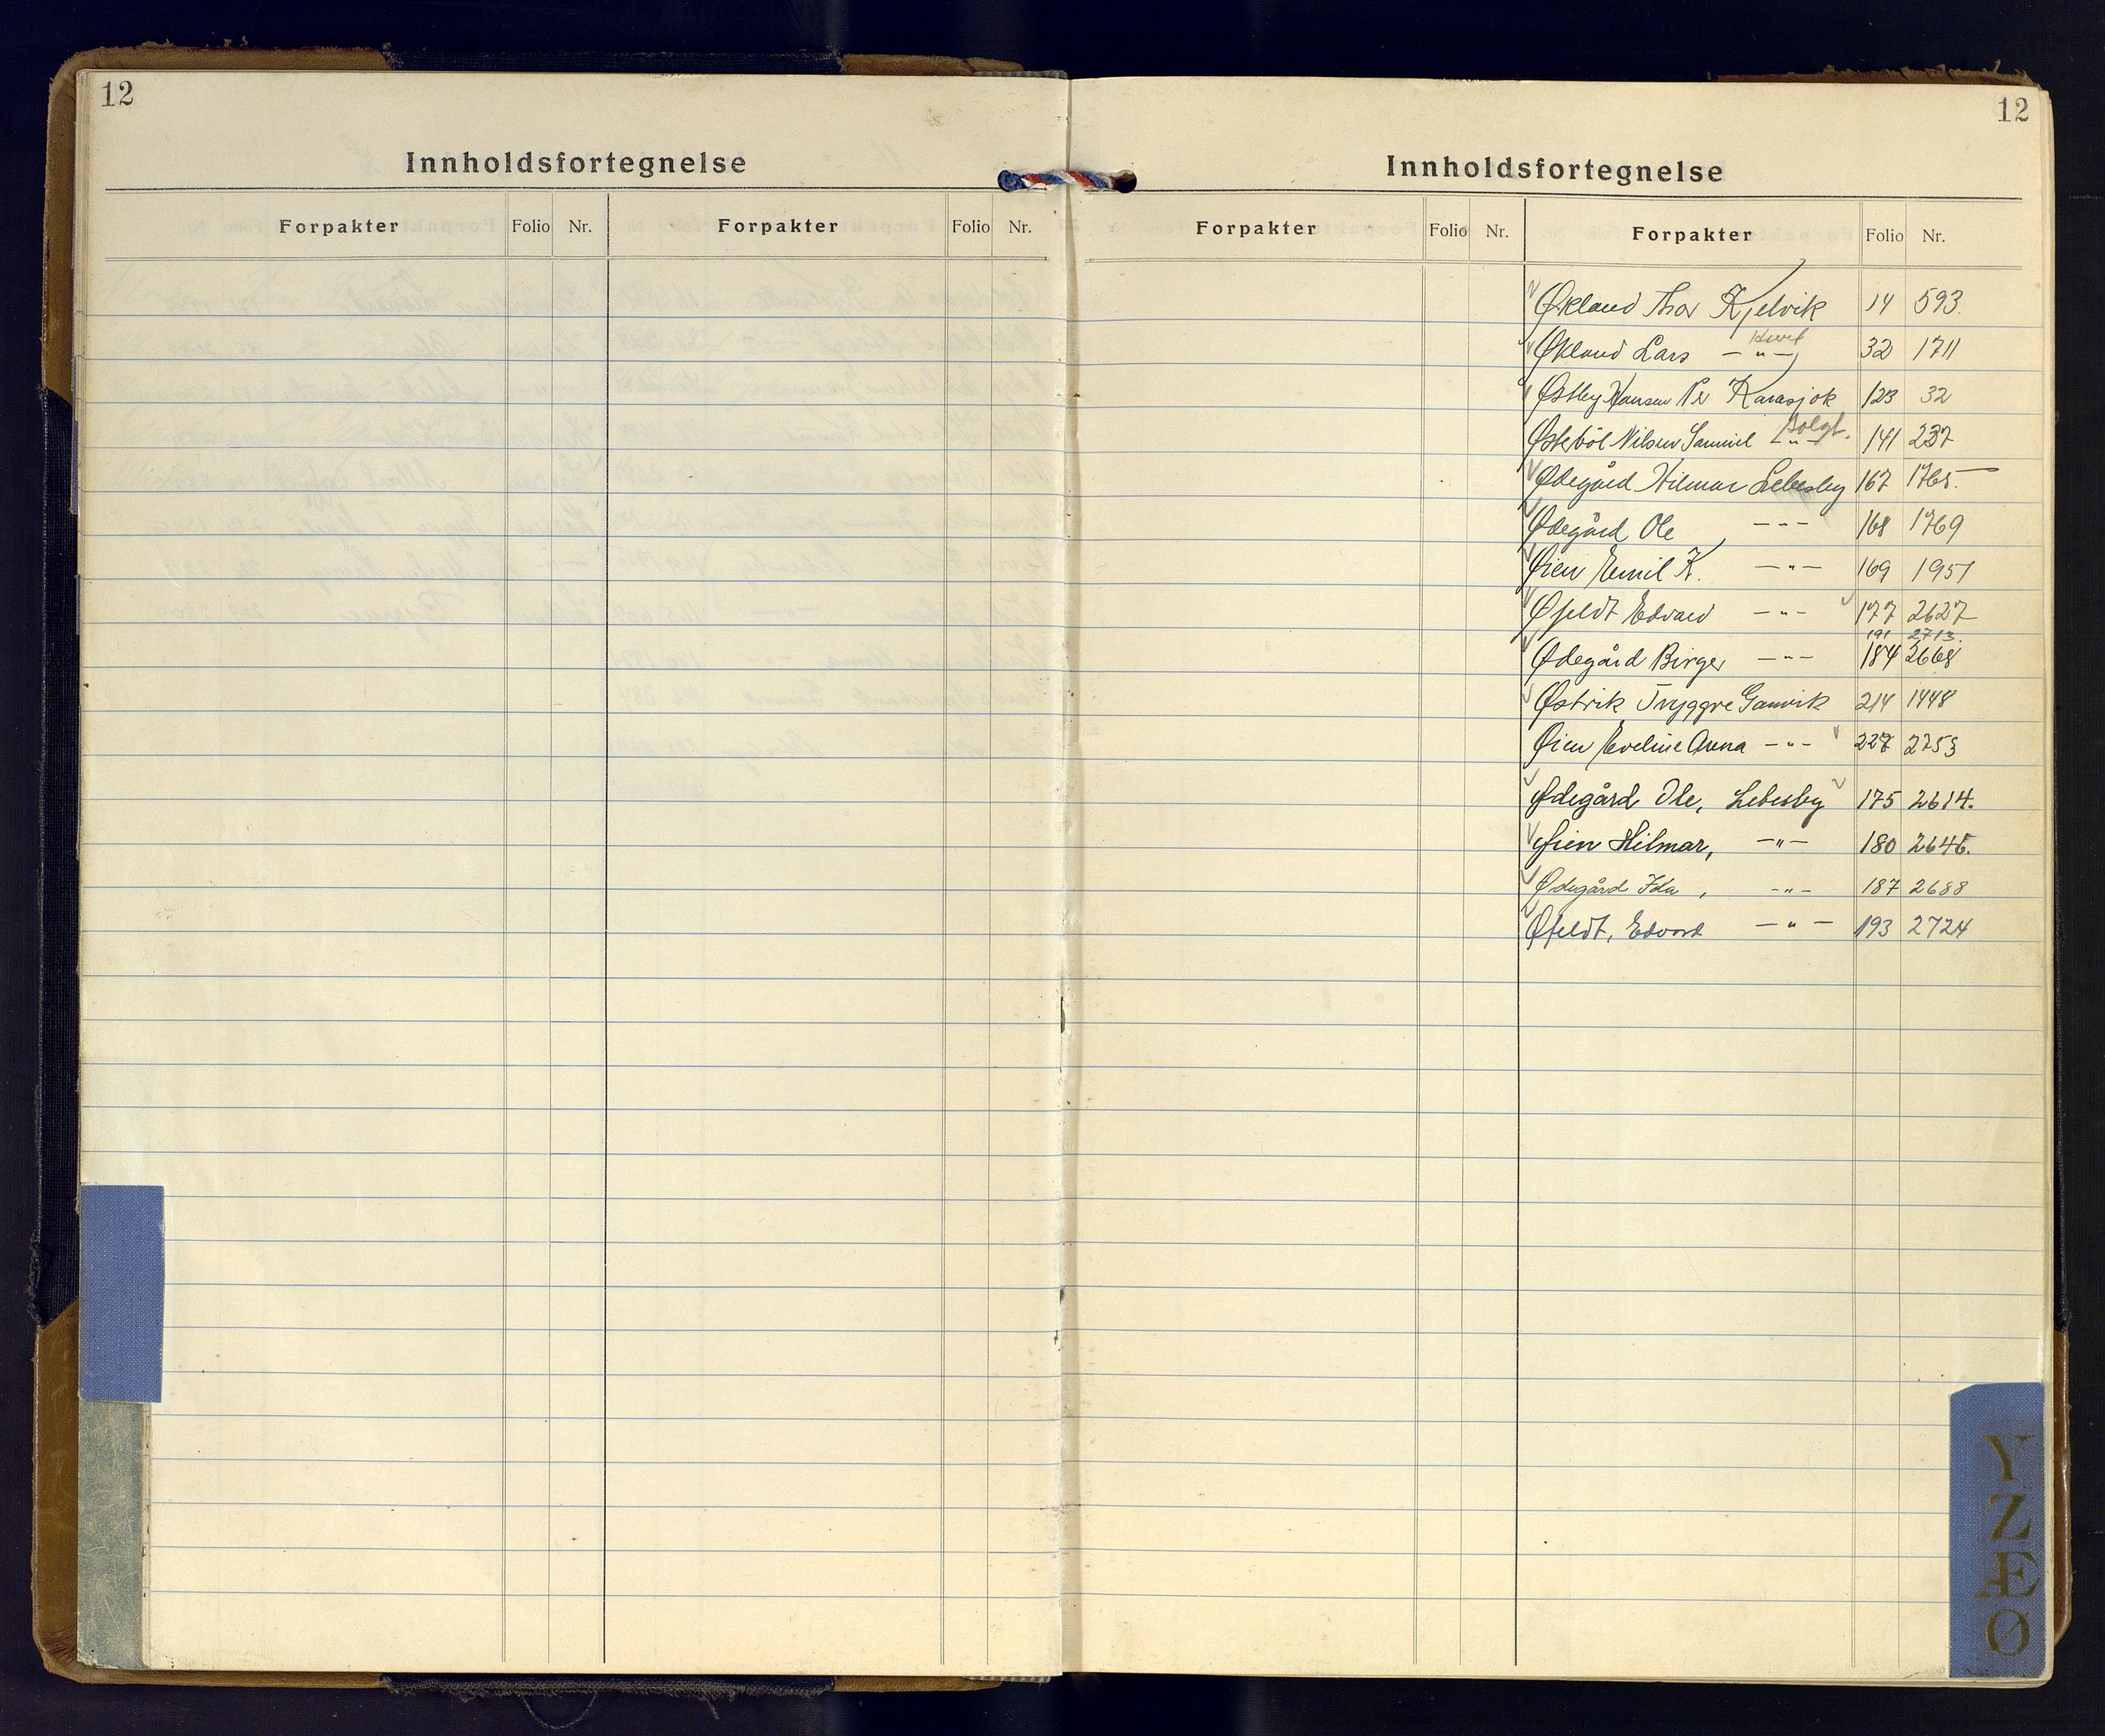 12
Innholdsfortegnelse
Forpakter Folio Nr. Forpakter Folio Nr.
12
Innholdsfortegnelse
Forpakter Folio Nr. Forpakter Folio Nr.
Økland Thor Kjelvik 14 593.
Økland Lars — " — 32 1711
Østby Hansen Per Karasjok 123 32
Østeböl Nilsen Samuel — " — Solgt. 141 237
Ødegård Hilmar Lebesby 167 1765.
Ødegård Ole — " — 168 1769
Øien Emil K. — " — 169 1951
Øfeldt Edvard — " — 177 2627
191 2713.
Ødegård Birger — " — 184 2668
Østvik Tryggve Gamvik 214 1448
Øien Eveline Anna — " — 227 2753
Ødegård Ole, Lebesby 175 2614.
Øien Hilmar, — " — 180 2645.
Ødegård Ida, — " — 187 2688
Øfeldt, Edvard — " — 193 2724
Y
Z
Æ
Ø